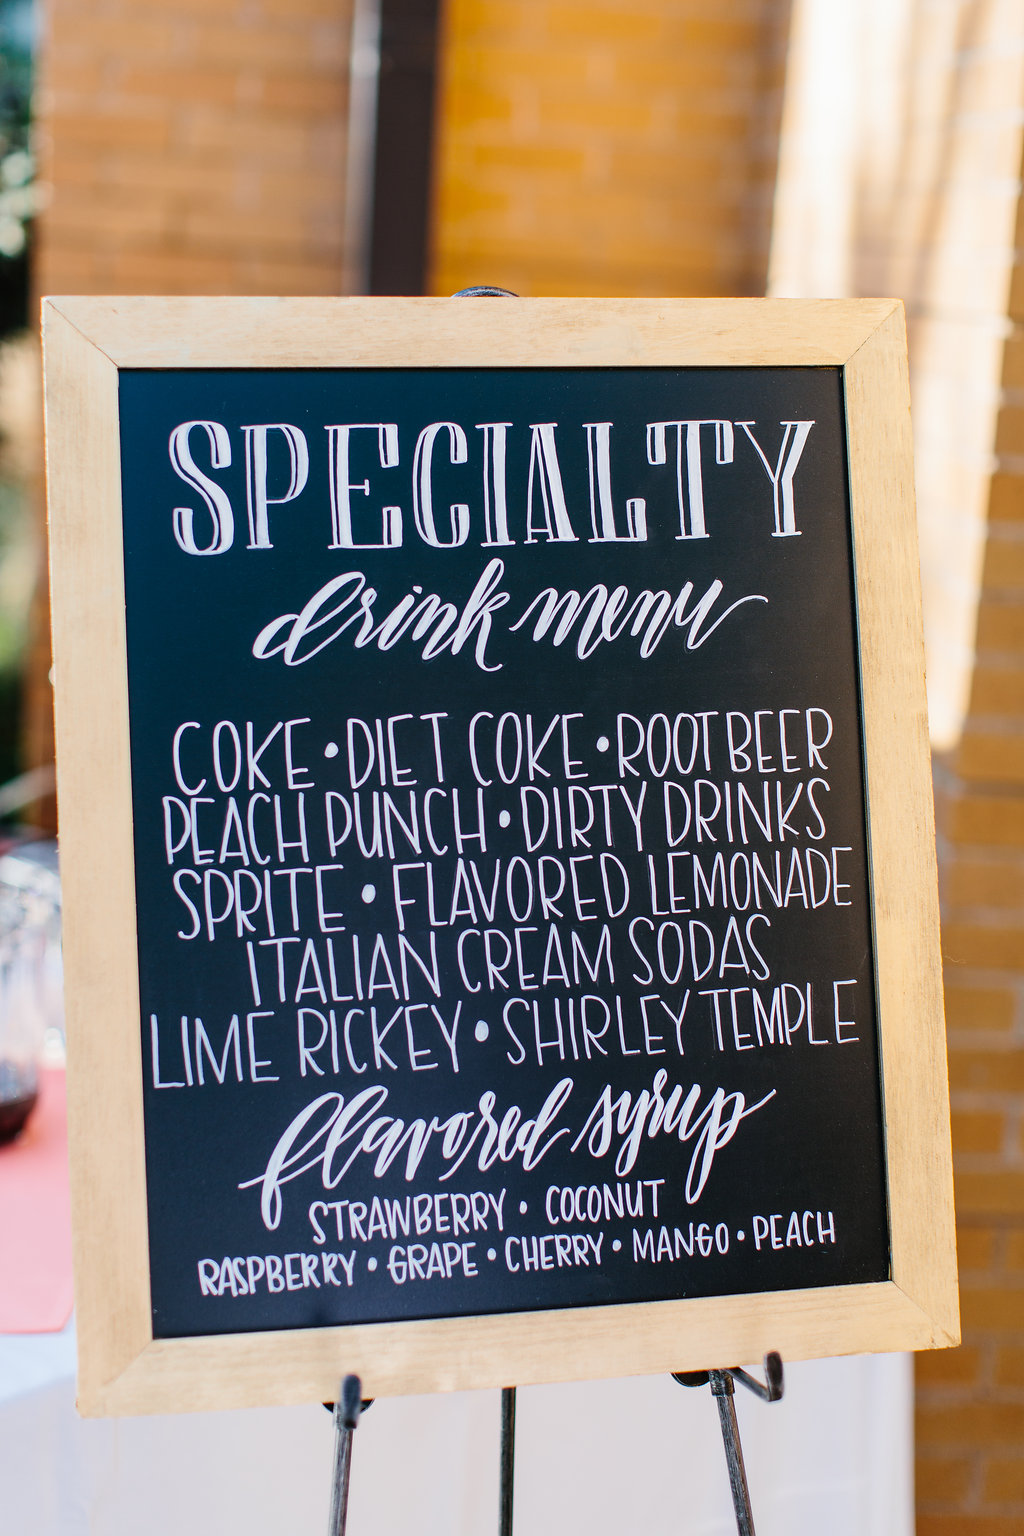 SPECIALTY
drink menu
COKE • DIET COKE • ROOT BEER
PEACH PUNCH • DIRTY DRINKS
SPRITE • FLAVORED LEMONADE
ITALIAN CREAM SODAS
LIME RICKEY • SHIRLEY TEMPLE
flavored syrup
STRAWBERRY • COCONUT
RASPBERRY • GRAPE • CHERRY • MANGO • PEACH